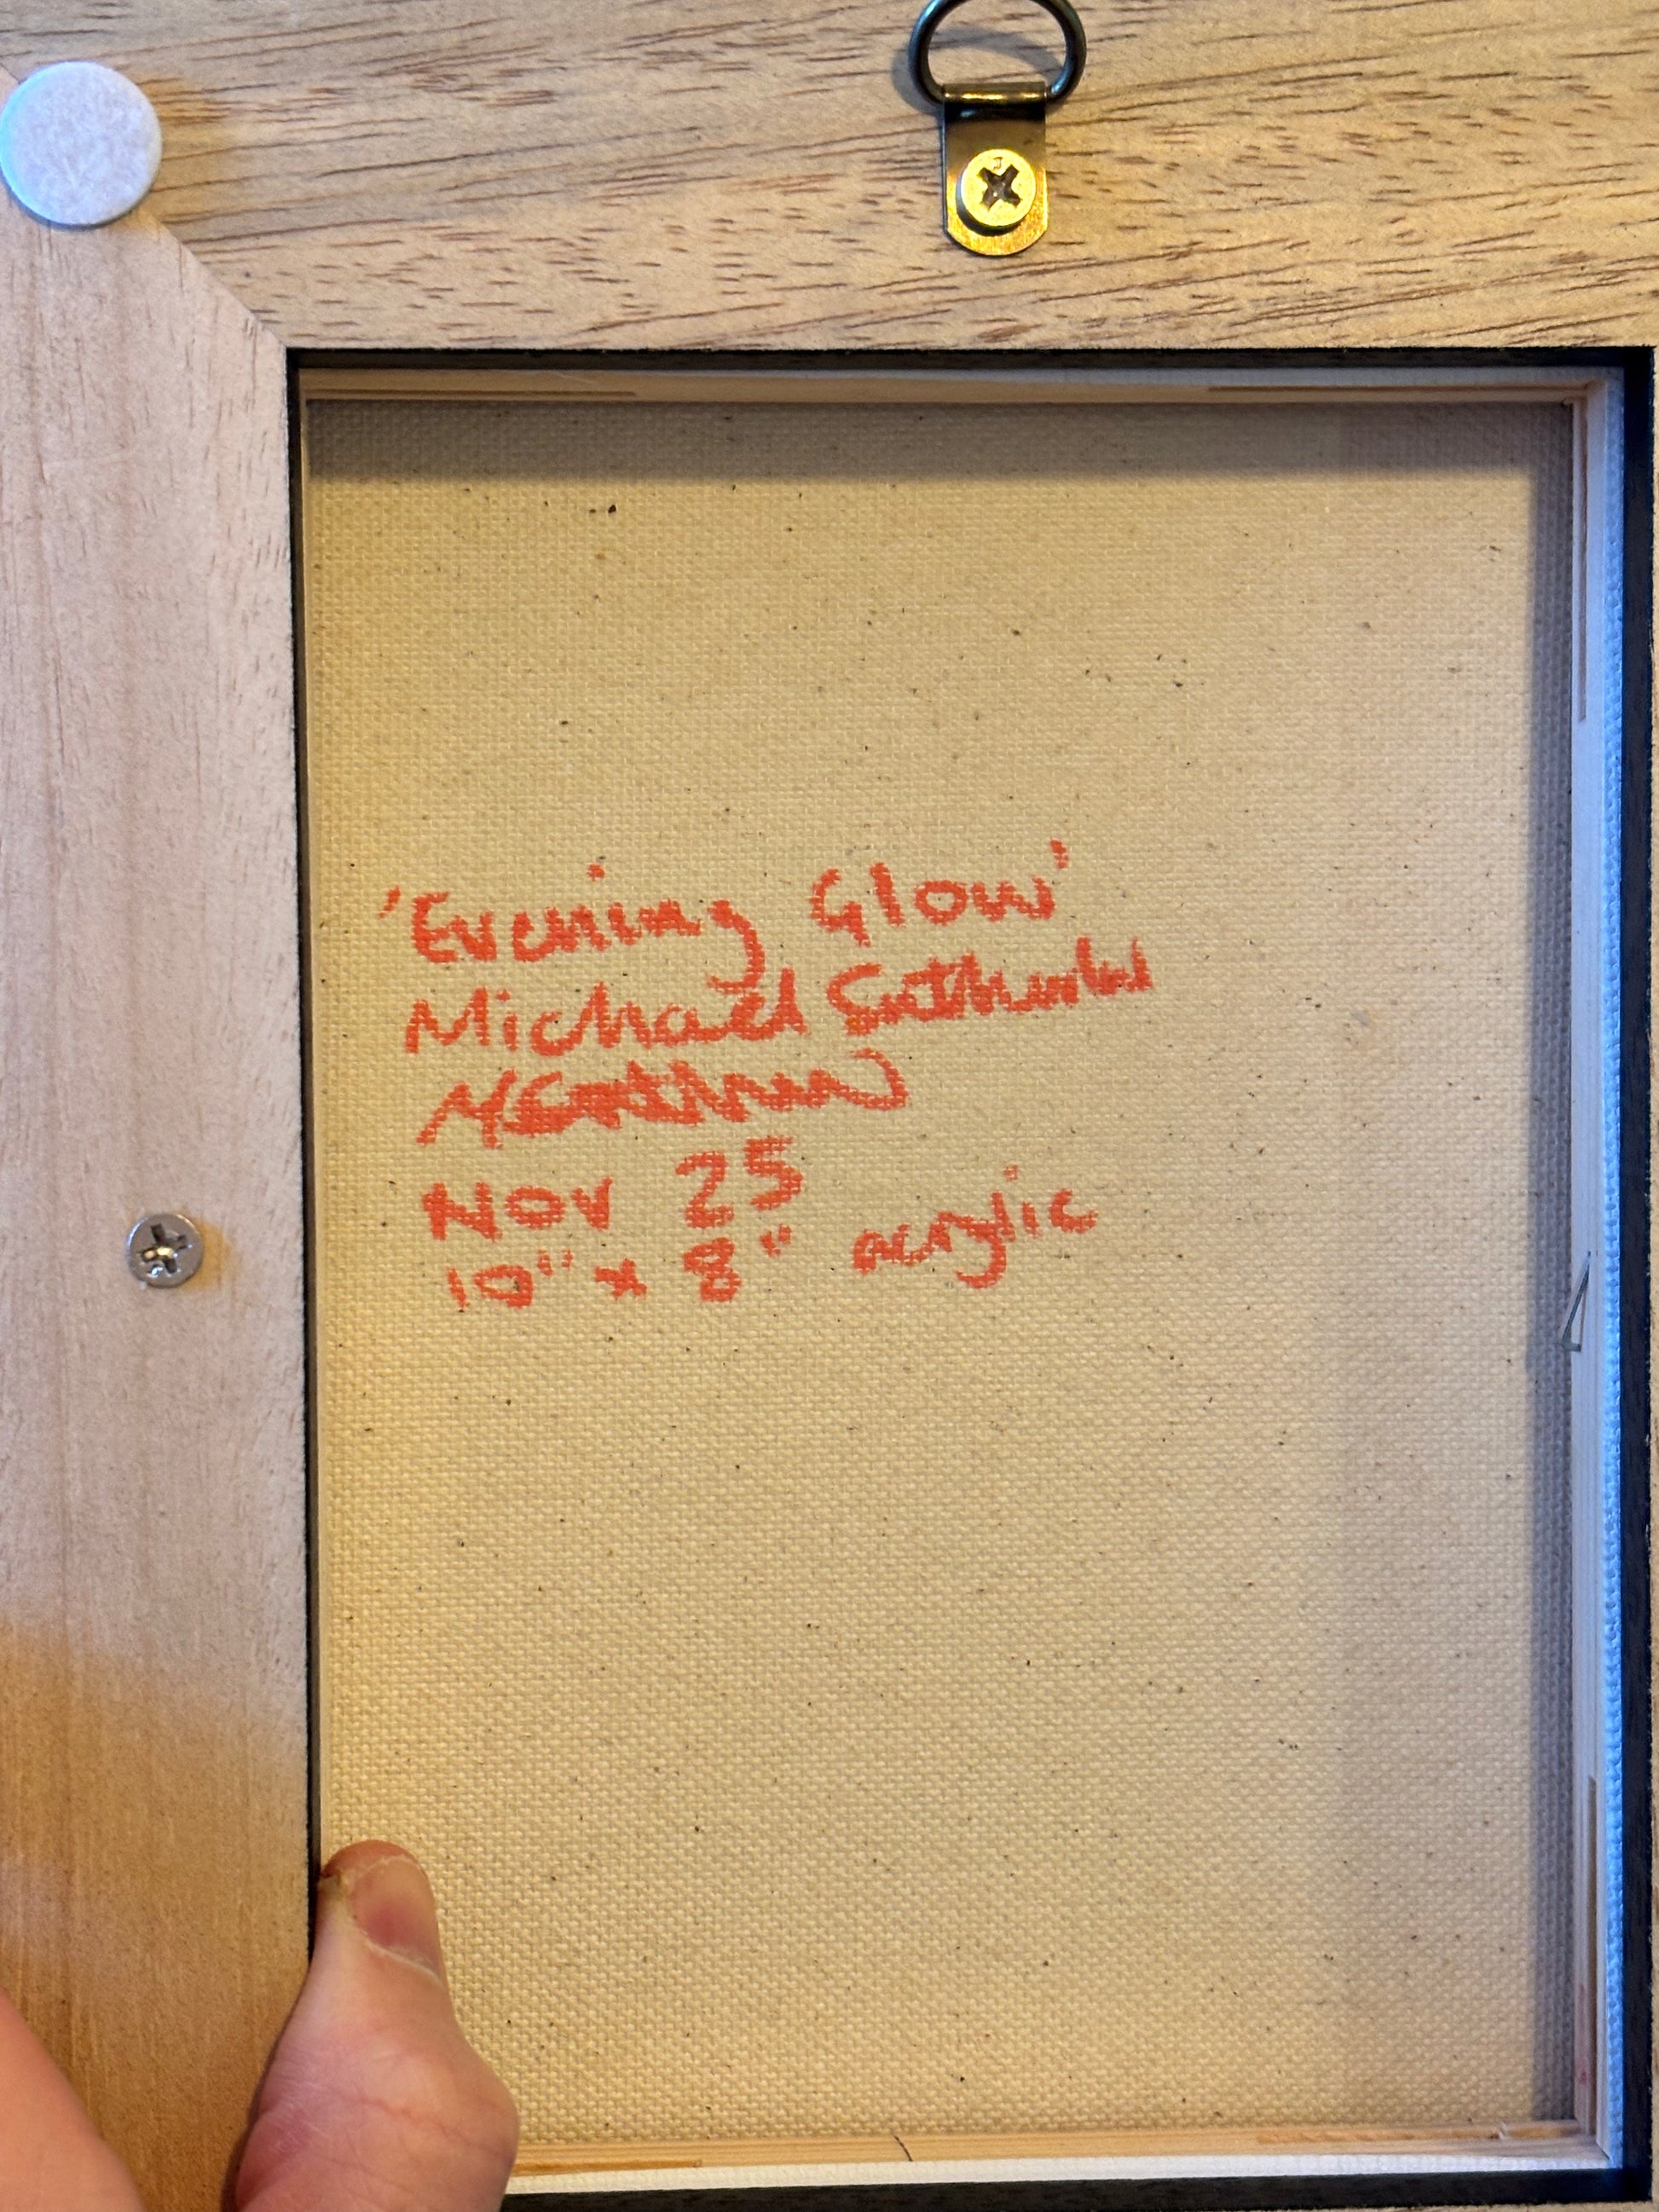 'Evening Glow'
Michael Sutherland
Nov 25
10" x 8" acrylic